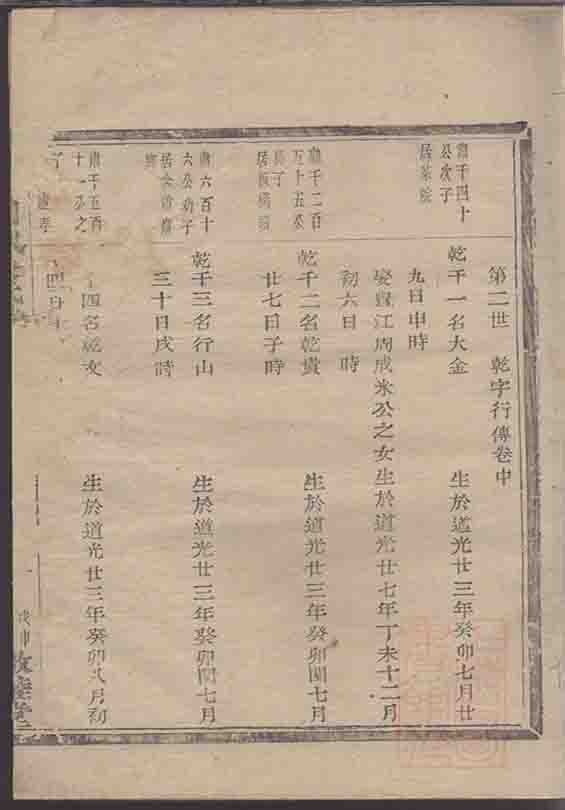 第二世　乾字行傳卷中
肅千四十
公次子
居茶院
乾千一名大金　生於道光廿三年癸卯七月廿
九日申時
娶貴江周成米公之女生於道光廿七年丁未十二月
初六日　時
肅千二百
五十五公
長子
居板橋
乾千二名乾貴　生於道光廿三年癸卯閏七月
廿七日子時
肅六百十
六公幼子
居
乾千三名行山　生於道光廿三年癸卯閏七月
三十日戌時
肅千五百
十一公之
子
四名乾文　生於道光廿三年癸卯八月初
四日
戊申